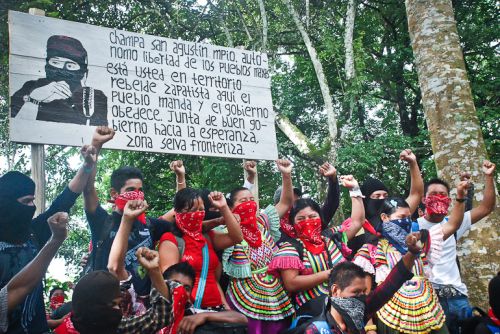 champa san agustin mpio, auto
nomo libertad de los pueblos mayas
está usted en territorio
rebelde zapatista aquí el
pueblo manda y el gobierno
obedece. junta de buen go-
bierno hacia la esperanza,
zona selva fronteriza.